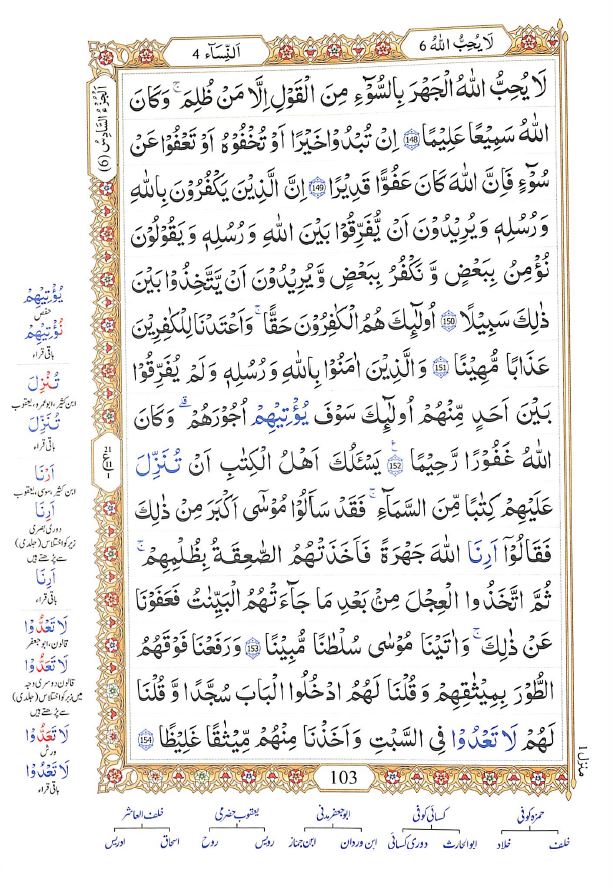 لَا يُحِبُّ اللهُ 6
اَلنِّسَآء 4
اَلْجُزْءُ السَّادِسُ (6)
لَا يُحِبُّ اللهُ الْجَهْرَ بِالسُّوْٓءِ مِنَ الْقَوْلِ اِلَّا مَنْ ظُلِمَ ۚ وَكَانَ
اللهُ سَمِيْعًا عَلِيْمًا 148 اِنْ تُبْدُوْا خَيْرًا اَوْ تُخْفُوْهُ اَوْ تَعْفُوْا عَنْ
سُوْٓءٍ فَاِنَّ اللهَ كَانَ عَفُوًّا قَدِيْرًا 149 اِنَّ الَّذِيْنَ يَكْفُرُوْنَ بِاللهِ
وَرُسُلِهٖ وَيُرِيْدُوْنَ اَنْ يُّفَرِّقُوْا بَيْنَ اللهِ وَرُسُلِهٖ وَيَقُوْلُوْنَ
نُؤْمِنُ بِبَعْضٍ وَّنَكْفُرُ بِبَعْضٍ وَّيُرِيْدُوْنَ اَنْ يَّتَّخِذُوْا بَيْنَ
ذٰلِكَ سَبِيْلًا 150 اُولٰٓئِكَ هُمُ الْكٰفِرُوْنَ حَقًّا ۚ وَاَعْتَدْنَا لِلْكٰفِرِيْنَ
عَذَابًا مُّهِيْنًا 151 وَالَّذِيْنَ اٰمَنُوْا بِاللهِ وَرُسُلِهٖ وَلَمْ يُفَرِّقُوْا
بَيْنَ اَحَدٍ مِّنْهُمْ اُولٰٓئِكَ سَوْفَ يُؤْتِيْهِمْ اُجُوْرَهُمْ ۗ وَكَانَ
اللهُ غَفُوْرًا رَّحِيْمًا 152 يَسْـَٔلُكَ اَهْلُ الْكِتٰبِ اَنْ تُنَزِّلَ
عَلَيْهِمْ كِتٰبًا مِّنَ السَّمَآءِ ۚ فَقَدْ سَاَلُوْا مُوْسٰٓى اَكْبَرَ مِنْ ذٰلِكَ
فَقَالُوْٓا اَرِنَا اللهَ جَهْرَةً فَاَخَذَتْهُمُ الصّٰعِقَةُ بِظُلْمِهِمْ ۚ
ثُمَّ اتَّخَذُوا الْعِجْلَ مِنْۢ بَعْدِ مَا جَآءَتْهُمُ الْبَيِّنٰتُ فَعَفَوْنَا
عَنْ ذٰلِكَ ۚ وَاٰتَيْنَا مُوْسٰى سُلْطٰنًا مُّبِيْنًا 153 وَرَفَعْنَا فَوْقَهُمُ
الطُّوْرَ بِمِيْثٰقِهِمْ وَقُلْنَا لَهُمُ ادْخُلُوا الْبَابَ سُجَّدًا وَّقُلْنَا
لَهُمْ لَا تَعْدُوْا فِي السَّبْتِ وَاَخَذْنَا مِنْهُمْ مِّيْثٰقًا غَلِيْظًا 154
يُؤْتِيْهِمْ
حفص
نُؤْتِيْهِمْ
باقی قراء
تُنْزِلَ
ابن کثیر، ابوعمرو، یعقوب
تُنَزِّلَ
باقی قراء
اَرْنَا
ابن کثیر، سوسی، یعقوب
اَرِنَا
دوری بصری
زیر کو اختلاس (جلدی)
سے پڑھتے ہیں
اَرِنَا
باقی قراء
لَا تَعْدُّوْا
قالون، ابوجعفر
لَا تَعَدُّوْا
قالون دوسری وجہ
میں زبر کو اختلاس (جلدی)
سے پڑھتے ہیں
لَا تَعَدُّوْا
ورش
لَا تَعْدُوْا
باقی قراء
21
ع 11
1
منزل 1
103
حمزہ کوفی
کسائی کوفی
ابوجعفر مدنی
یعقوب حضرمی
خلف العاشر
خلف
خلاد
ابوالحارث
دوری کسائی
ابن وردان
ابن جماز
رویس
روح
اسحاق
ادریس